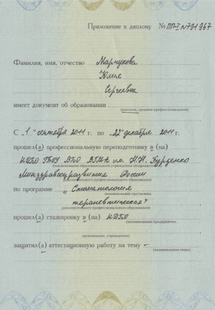 Приложение к диплому № ПП-I № 791967
Фамилия, имя, отчество Маршукова
Юлия
Сергеевна
имеет документ об образовании
С "1" сентября 2011 г. по "25" декабря 2011 г.
прошел(а) профессиональную переподготовку в (на)
ГБОУ ВПО ВГМА им. Н.Н. Бурденко
Минздравсоцразвития России
по программе "Стоматология
терапевтическая"
прошел(а) стажировку в (на)
защитил(а) аттестационную работу на тему